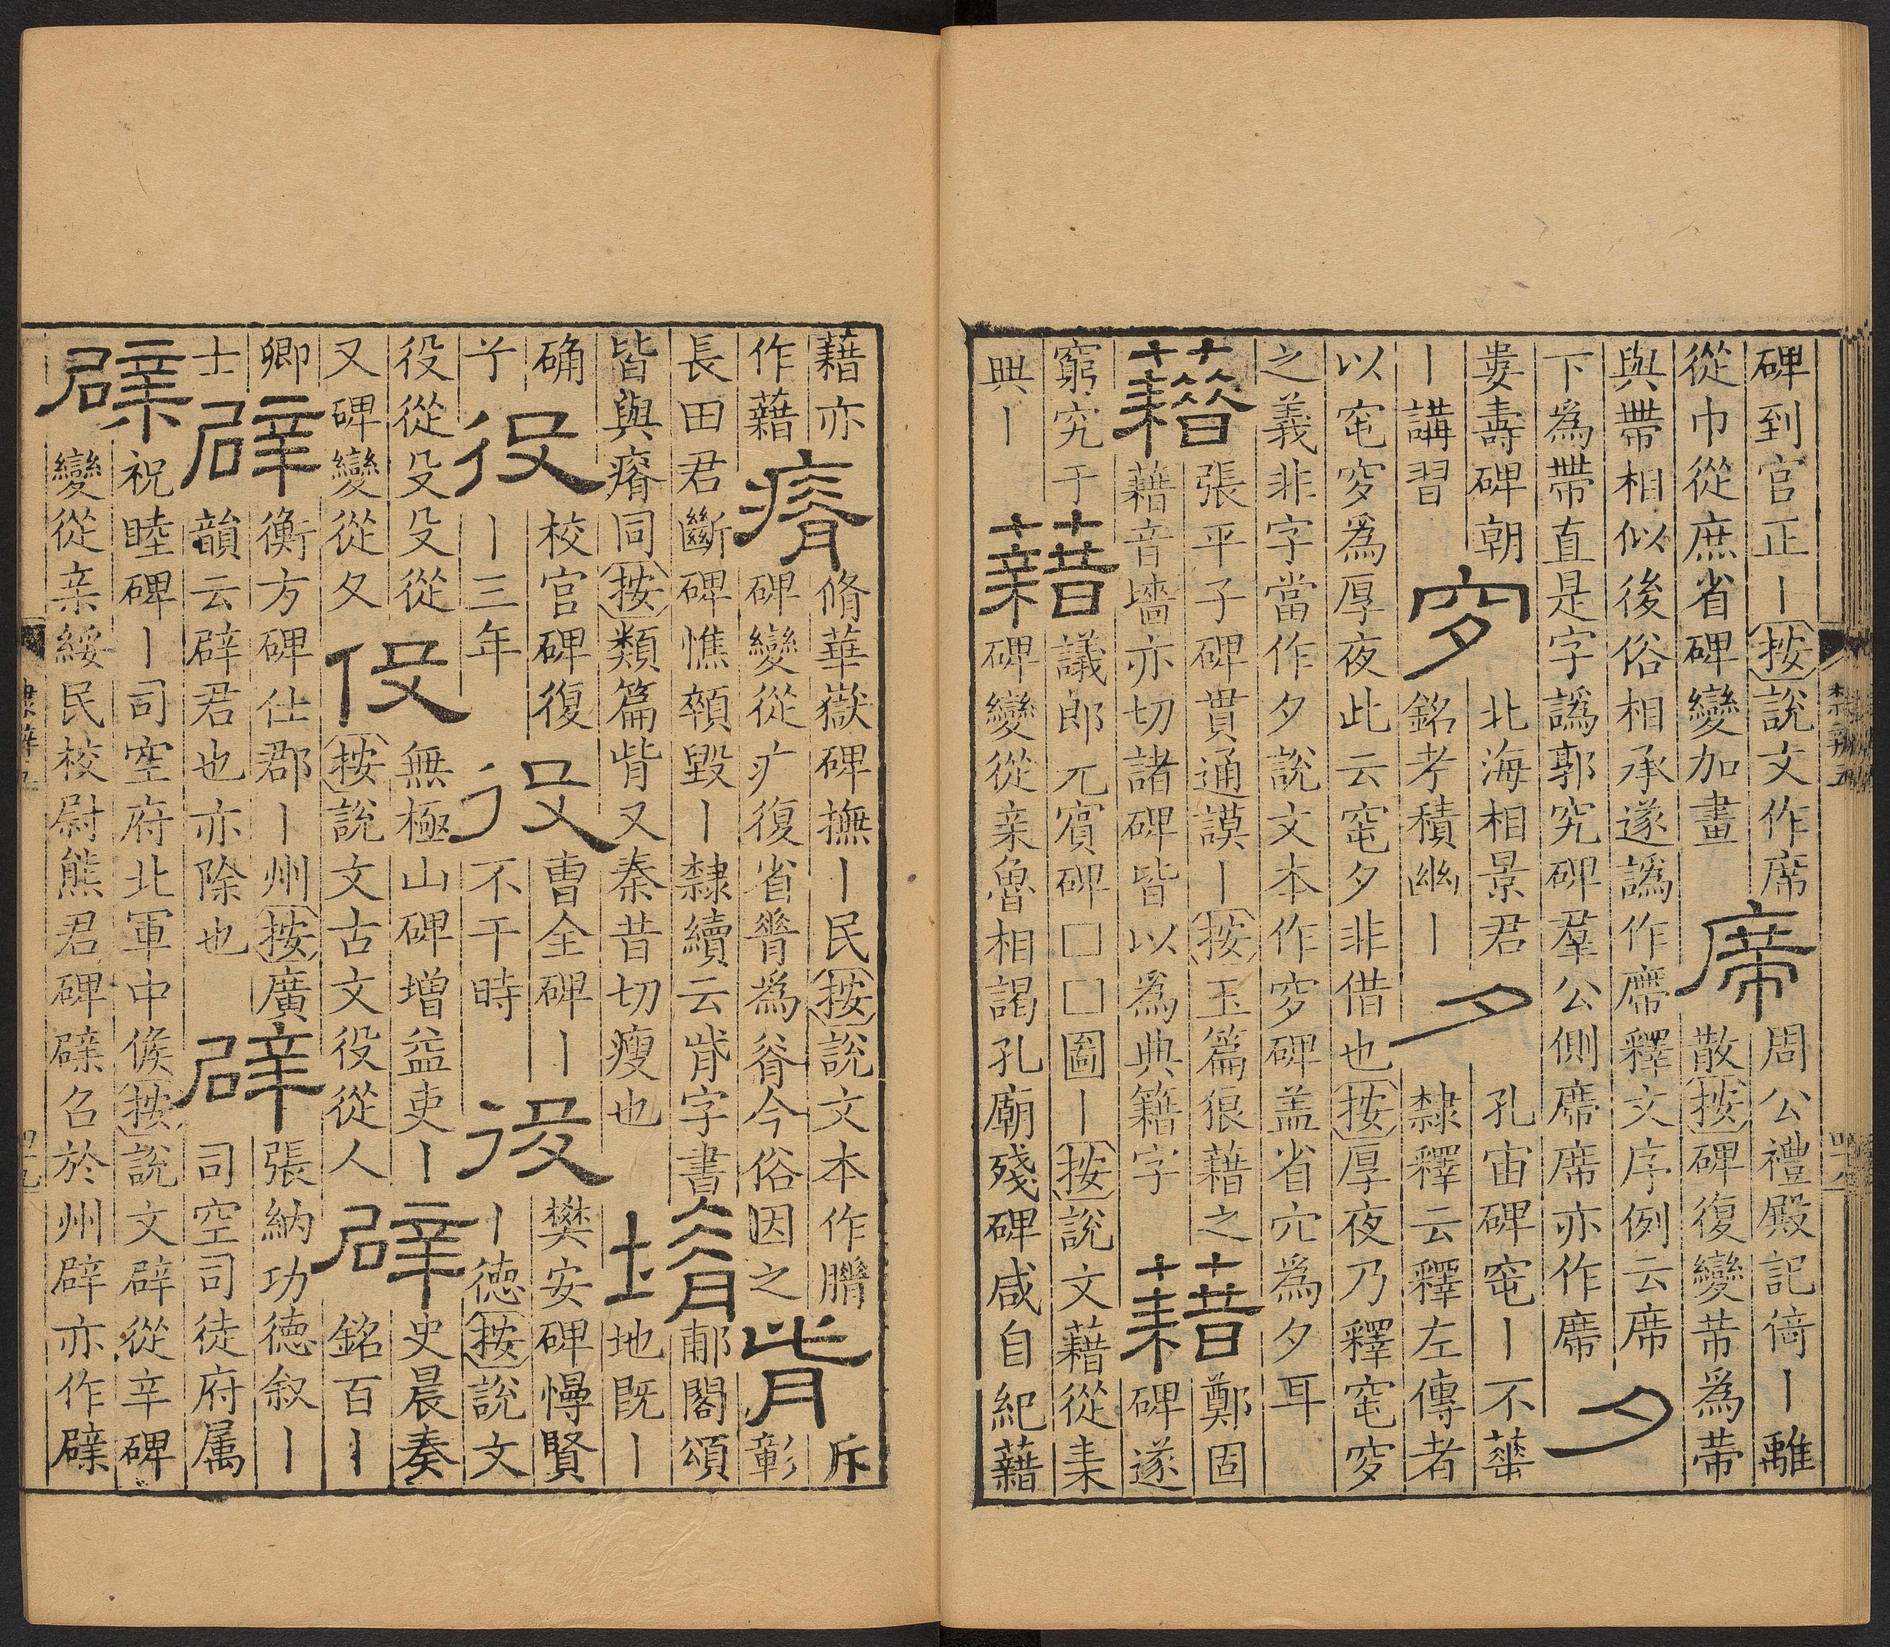 碑到官正丨按說文作席
從巾從庶省碑變加畫
席
周公禮殿記倚丨離
散按碑復變芾為帶
與帶相似後俗相承遂譌作廗釋文序例云席
下為帶直是字譌郭究碑羣公側廗席亦作廗
夕
婁壽碑朝
丨講習
穸
北海相景君
銘考積幽丨
夕
孔宙碑窀丨不華
隸釋云釋左傳者
以窀穸爲厚夜此云窀夕非借也按厚夜乃釋窀穸
之義非字當作夕說文本作穸碑盖省穴為夕耳
藉
張平子碑貫通謨丨按玉篇狼藉之
藉音墻亦切諸碑皆以為典籍字
藉
鄭固
碑遂
窮究于
典丨
藉
議郎元賓碑□□圖丨按說文藉從耒
碑變從亲魯相謁孔廟殘碑咸自紀藉
藉亦
作藉
瘠
脩華嶽碑撫丨民按說文本作膌
碑變從疒復省脊為㫺今俗因之
胔
斥
彰
長田君斷碑憔顇毀丨隸續云胔字書
皆與瘠同按類篇胔又秦昔切瘦也
塉
郙閣頌
地既丨
确
兮
役
校官碑復
丨三年
役
曹全碑丨
不干時
役
樊安碑慢賢
丨徳按說文
役從殳殳從
又碑變從夂
伇
無極山碑增益吏丨
按說文古文役從人
辟
史晨奏
銘百丨
卿
士
辟
衡方碑仕郡丨州按廣
韻云辟君也亦除也
辟
張納功徳叙丨
司空司徒府属
辟
祝睦碑丨司空府北軍中候按說文辟從辛碑
變從亲綏民校尉熊君碑辟名於州辟亦作辟